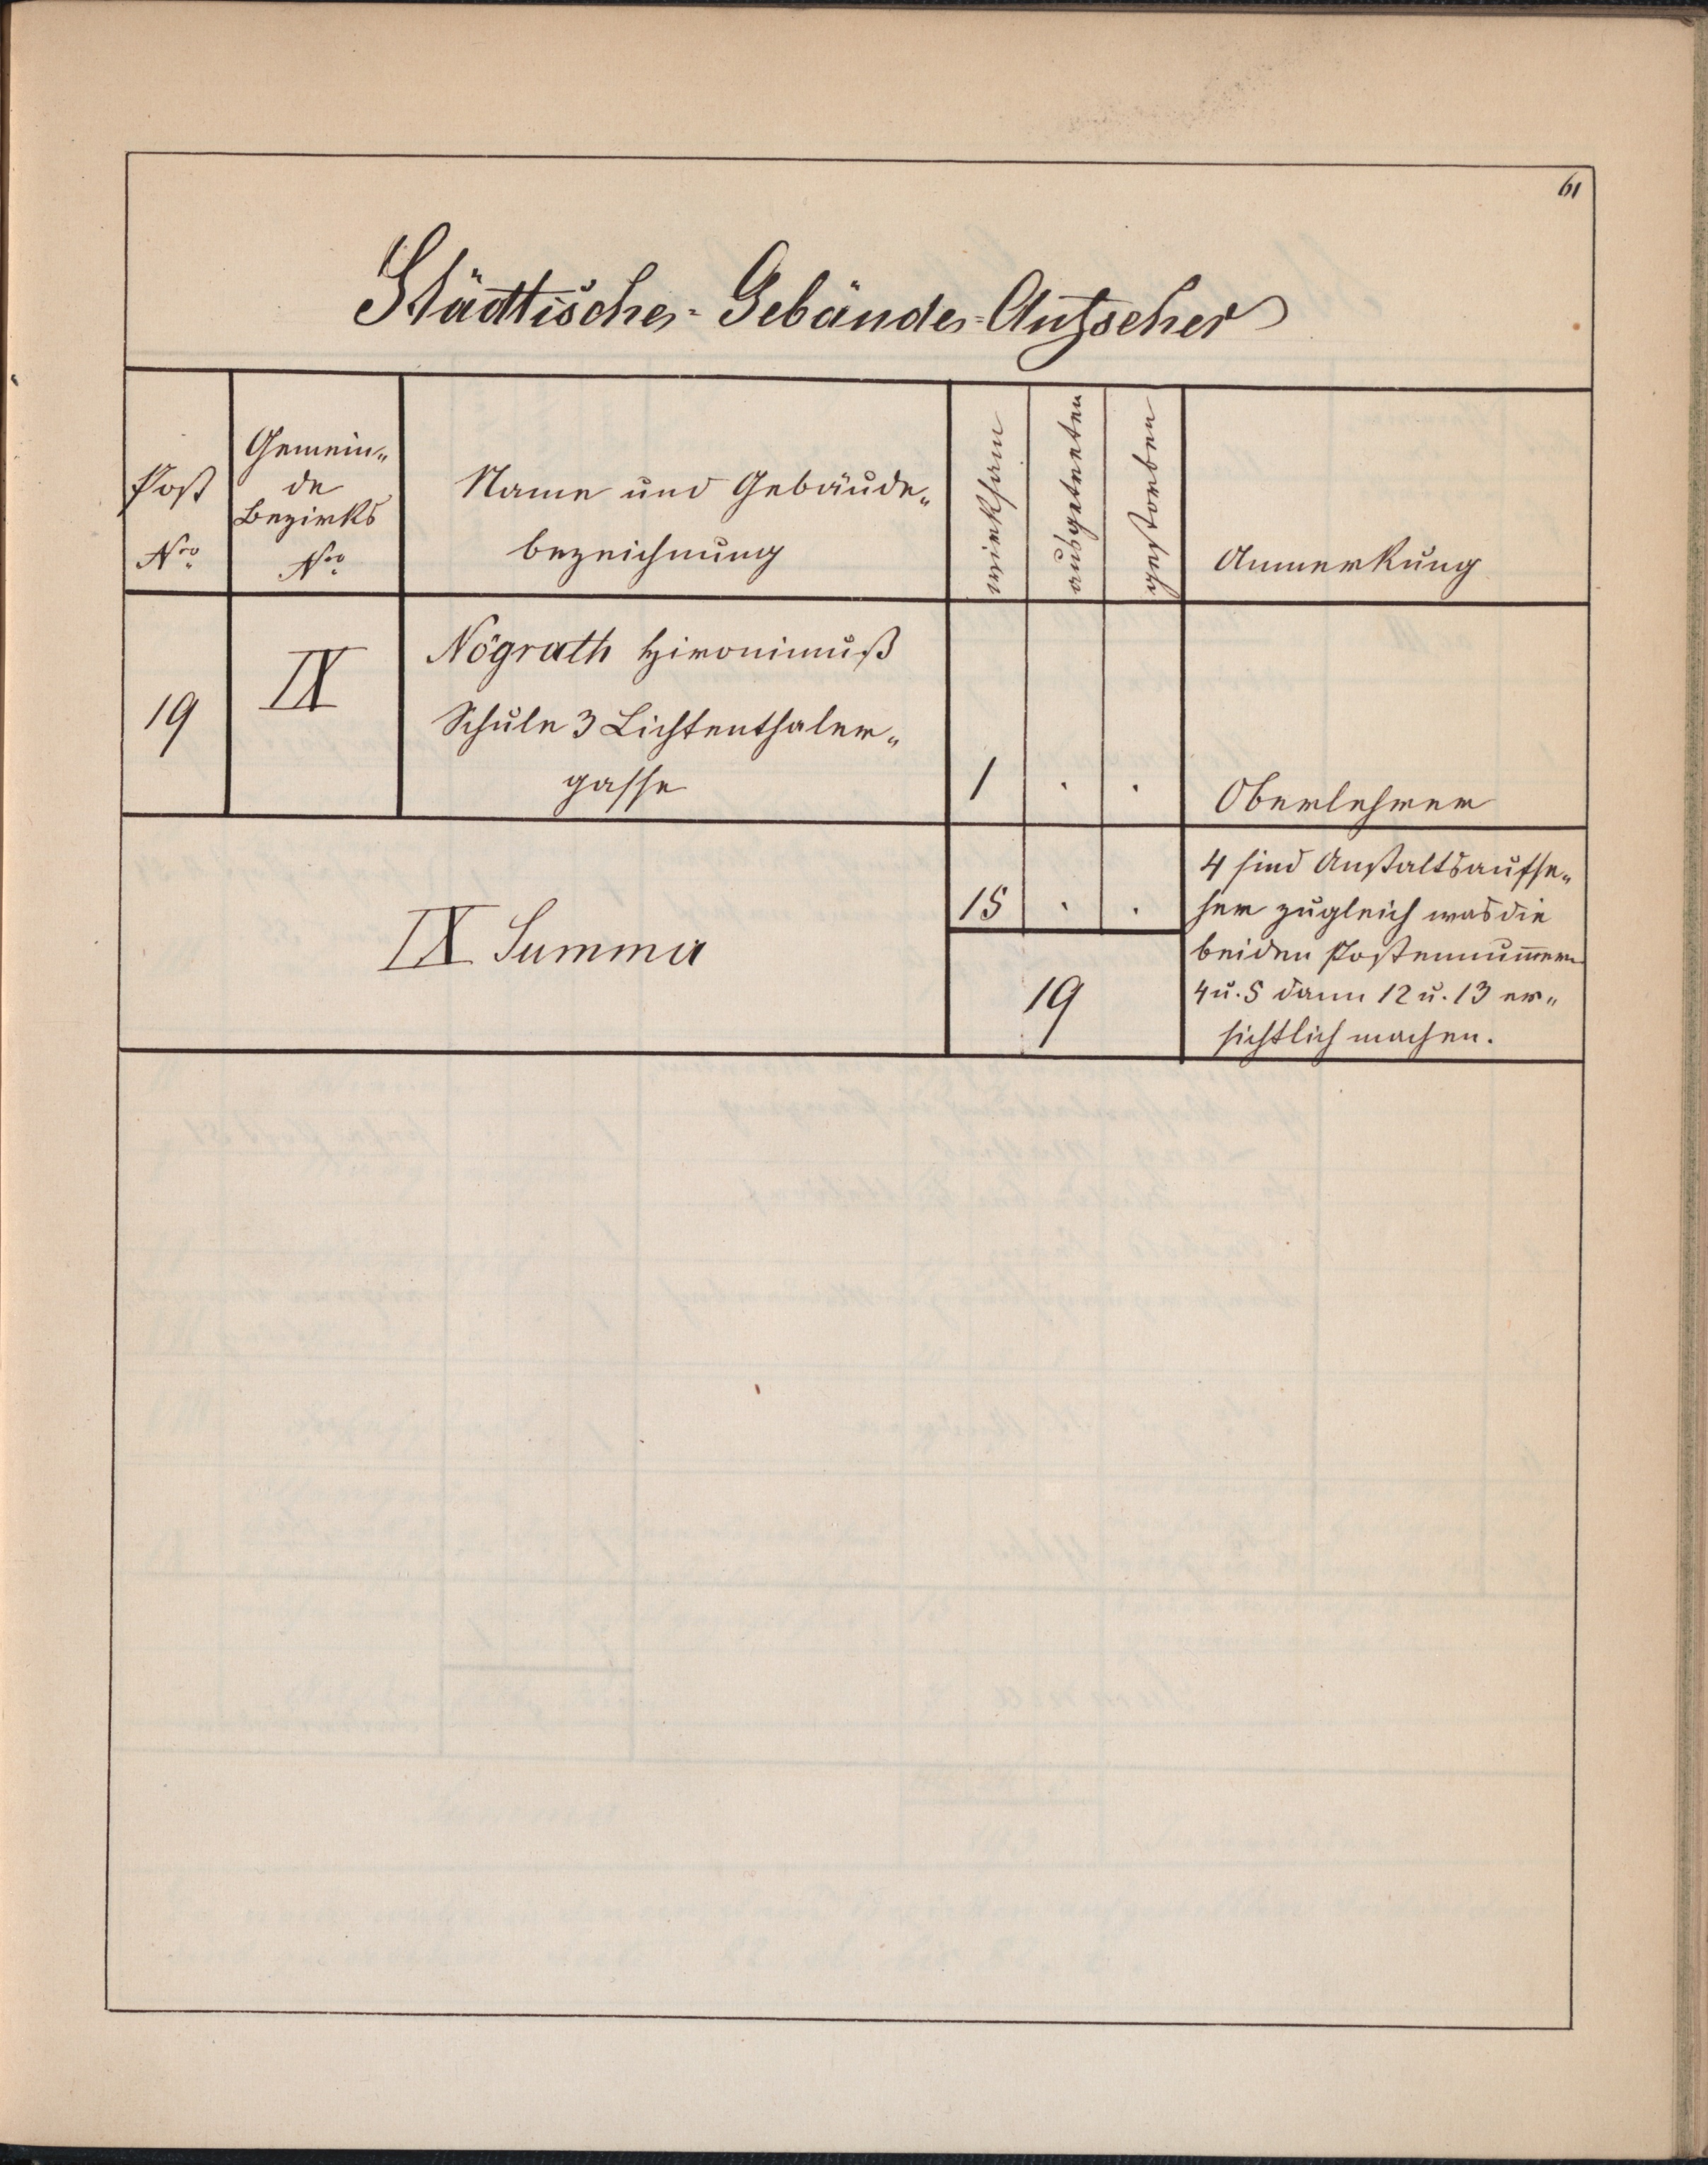 61
Städtische-Gebäude-Aufseher
Post
Nro.
Gemein„
de
Bezirks
Nro.
Name und Gebäude„
bezeichnung
wirksam
ausgetreten
gestorben
Anmerkung
19
IX
Nögrath Hironimuß
Schule 3 Lichtenthaler„
gasse
1 . .
Oberlehrer
IX Summa
15 . .
19
4 sind Anstaltsaufse„
her zugleich was die
beiden Postennum̅ern
4 u. 5 dann 12 u. 13 er„
sichtlich machen.